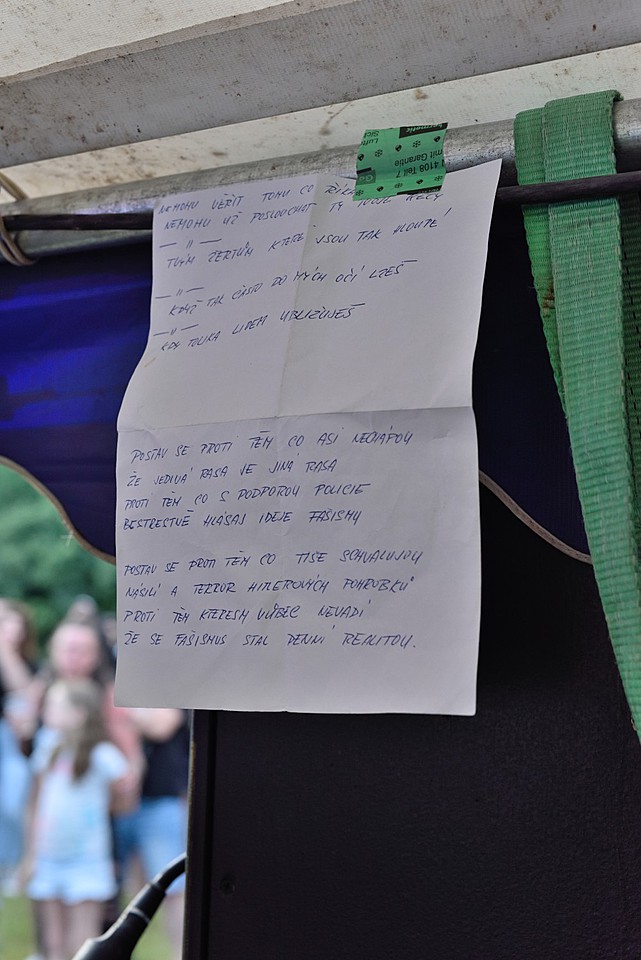 NEMOHU VĚŘIT TOMU CO
NEMOHU UŽ POSLOUCHAT TY TVOJE KECY
— " —
TVÝM ŽERTŮM KTERÉ JSOU TAK HLOUPÉ!
— " —
KDYŽ TAK ČASTO DO MÝCH OČÍ LŽEŠ
— " —
KDY TOLIKA LIDEM UBLIŽUJEŠ
POSTAV SE PROTI TĚM CO ASI NECHÁPOU
ŽE JEDINÁ RASA JE JINÁ RASA
PROTI TĚM CO S PODPOROU POLICIE
BESTRESTNĚ HLÁSAJ IDEJE FAŠISMU
POSTAV SE PROTI TĚM CO TIŠE SCHVALUJOU
NÁSILÍ A TERROR HITLEROVÝCH POHROBKŮ
PROTI TĚM KTEREJM VŮBEC NEVADÍ
ŽE SE FAŠISMUS STAL DENNÍ REALITOU.
4108 Teil 7
mit Garantie
Luft